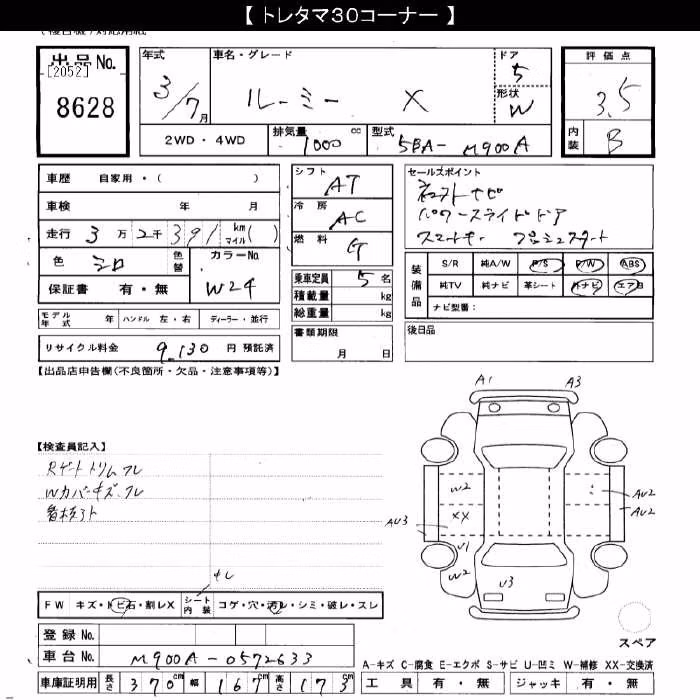 【トレタマ30コーナー】
出品No.
[2052]
8628
年式 3/7月
車名・グレード ルーミー X
ドア 5
形状 W
評価点 3.5
内装 B
2WD・4WD
排気量 1000 cc
型式 5BA-M900A
車歴 自家用・( )
車検 年 月
走行 3万2千391 km マイル( )
色 シロ
色替
カラーNo. W24
保証書 有・無
モデル年式 年 ハンドル 左・右 ディーラー・並行
リサイクル料金 9,130 円 預託済
シフト AT
冷房 AC
燃料 G
乗車定員 5 名
積載量 kg
総重量 kg
書類期限 月 日
セールスポイント
ナビ
パワースライドドア
スマートキー プッシュスタート
装備品
S/R 純A/W P/S P/W ABS
純TV 純ナビ 革シート 外ナビ エアB
ナビ型番:
後日品
【出品店申告欄(不良箇所・欠品・注意事項等)】
【検査員記入】
Rゲートトリムワレ
Wカバーキズ・ワレ
A1 A3
W2
XX
AU3
U1
W2
U3
AU2
AU2
FW キズ・トビ石・割レX シート内装 コゲ・穴・汚レ・シミ・破レ・スレ
スペア
登録No.
車台No. M900A-0572633
A-キズ C-腐食 E-エクボ S-サビ U-凹ミ W-補修 XX-交換済
車庫証明用 長さ 370cm 幅 167cm 高さ 173cm
工具 有・無 ジャッキ 有・無